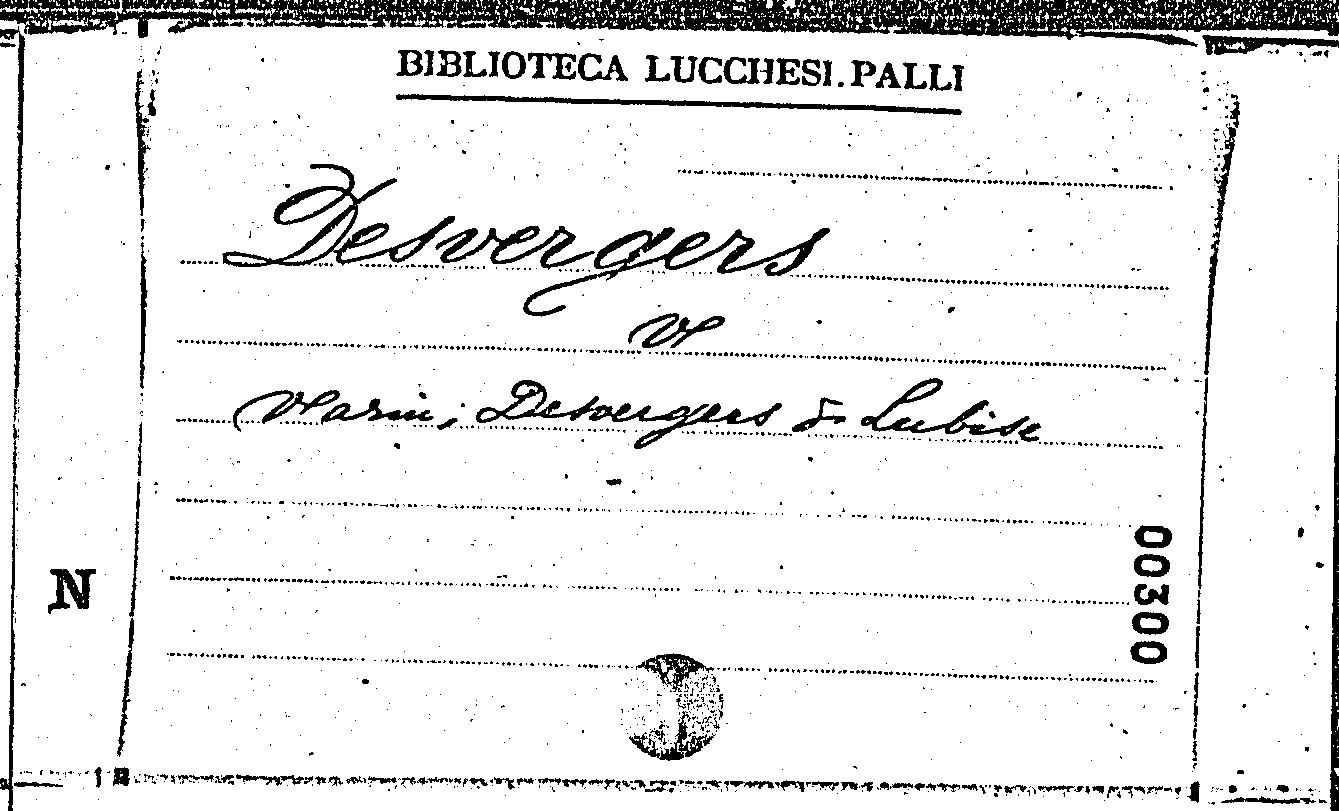 BIBLIOTECA LUCCHESI.PALLI
Desvergers
V
Varin, Desvergers & Lubise
00300
N